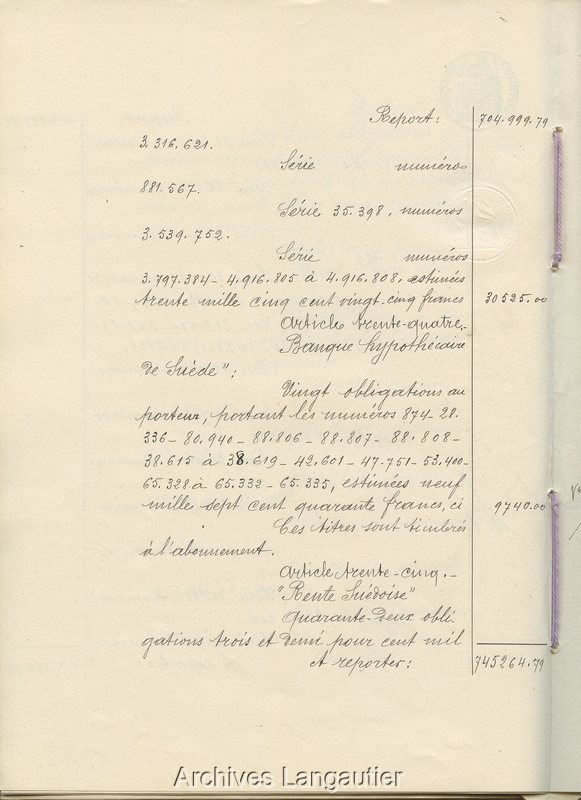 Report: 704.999.79
3.316.621.
Série numéros
881.567.
Série 35.398, numéros
3.539.752.
Série numéros
3.797.384 - 4.916.805 à 4.916.808, estimées
trente mille cinq cent vingt-cinq francs 30525.00
Article trente-quatre.-
Banque hypothécaire
de Suède":
Vingt obligations au
porteur, portant les numéros 874-28.
336-80.940-88.806-88.807-88.808-
38.615 à 38.619-42.601-47.751-53.400-
65.328 à 65.332-65.335, estimées neuf
mille sept cent quarante francs, ci 9740.00
Ces titres sont timbrés
à l'abonnement.
Article trente-cinq.-
"Rente Suédoise"
quarante-deux obli-
gations trois et demi pour cent mil
A reporter: 745264.79
Archives Langautier